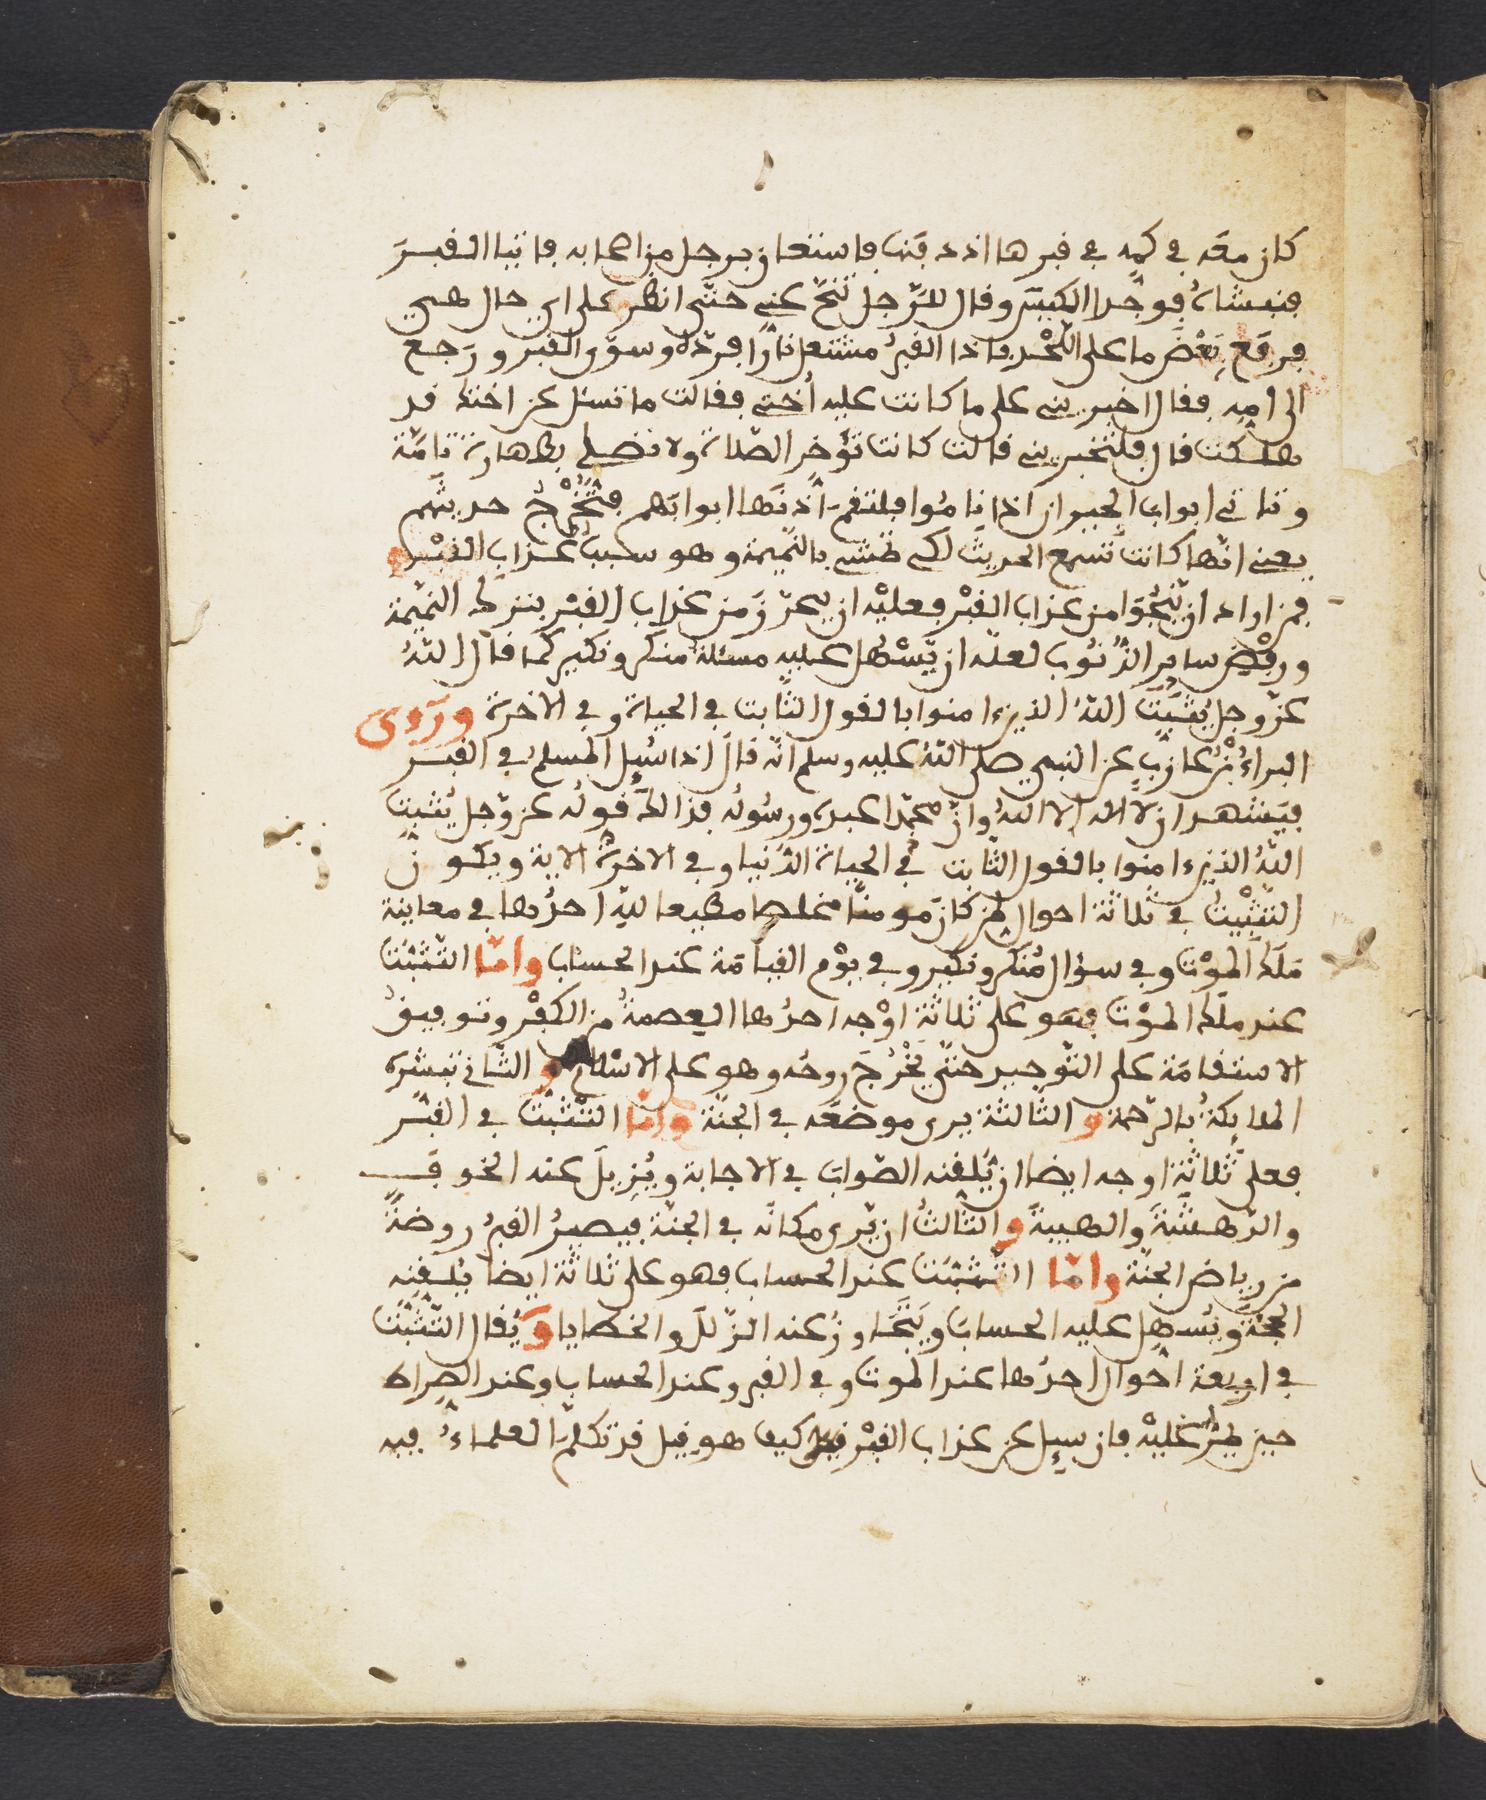 كان معه في كمه في قبرها اذ دفنها فاستعان برجل من اصحابه فاتيا القبر
فنبشاه فوجدا الكيس وقال للرّجل تنحّ عني حتّى انظر على اي حال هي
فرفع بعض ما على اللّحد فاذا القبر مشتعل نارا فردّه وسوّى القبر ورجع
الى امه فقال اخبريني على ما كانت عليه أختي فقالت ما تسئل عن اختك قد
هلكت قال فلتخبريني قالت كانت تؤخر الصّلاة ولا تصلي بطهارة تامّة
وتاتي ابواب الجيران اذا ناموا فتلقم أذنها ابوابهم فتخرج حديثهم
يعني انّها كانت تسمع الحديث لكي تمشي بالنّميمة وهو سبب عذاب القبر
فمن اراد ان ينجوا من عذاب القبر فعليه ان يتحرّز من عذاب القبر بترك النميمة
ورفض ساير الذّنوب لعلّه ان يّسهل عليه مسئلة منكر ونكير كما قال اللّه
عزّ وجل يثبت اللّه الذين ءامنوا بالقول الثّابت في الحياة وفي الاخرة وروى
البراء بن عازب عن النبي صلى اللّه عليه وسلم انّه قال اذا سُيل المسلم في القبر
فيشهد ان لا اله الا اللّه وانّ محمّدا عبده ورسوله فذالك قوله عز وّجل يثبت
اللّه الذين ءامنوا بالقول الثّابت في الحياة الدّنيا وفي الاخرة الاية ويكون
التّثبيت في ثلاثة احوال لمن كان مومنا مخلصا مطيعا للّه احدها في معاينة
ملك الموت وفي سؤال مّنكر ونكير وفي يوم القيامة عند الحساب وامّا التّثبّت
عند ملك الموت فهو على ثلاثة اوجه احدها العصمة من الكفر وتوفيق
الاستقامة على التّوحيد حتّى يخرج روحه وهو على الاسلام و الثّاني تبشره
الملايكة بالرّحمة و الثّالثة يرى موضعه في الجنّة وامّا التّثبّت في القبر
فعلى ثلاثة اوجه ايضا ان يّلقنه الصّواب في الاجابة ويُزيل عنه الخوف
والدّهشة والهيبة و الثّالث ان يّرى مكانه في الجنّة فيصير القبر روضة
من رياض الجنّة وامّا التّثبّت عند الحساب فهو على ثلاثة ايضا يُلقنه
الحجّة ويُسهل عليه الحساب ويتجاوز عنه الزّلل والخطايا و يُقال التّثبّت
في اربعة احوال احدها عند الموت وفي القبر وعند الحساب وعند الصراط
حين يمرّ عليه فان سيل عن عذاب القبر كيف هو قيل قد تكلّم العلماء فيه